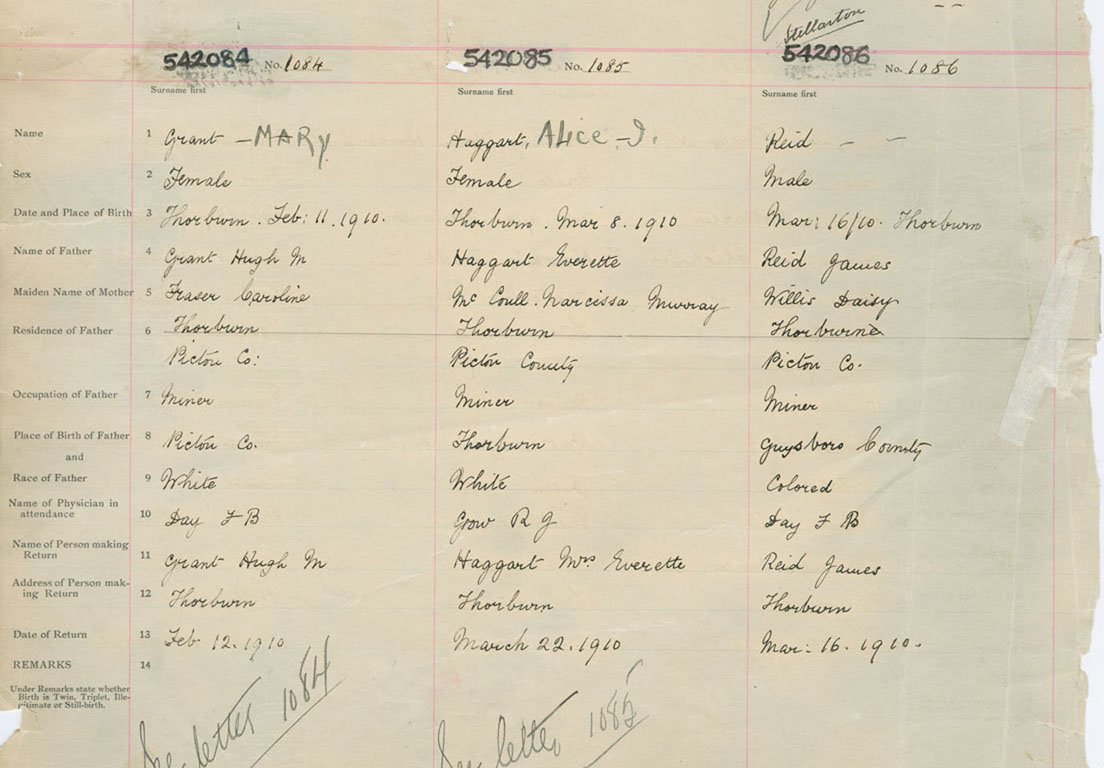 Stellarton
542084 No. 1084 542085 No. 1085 542086 No. 1086
Surname first Surname first Surname first
Name 1 Grant - MARY Haggart, ALICE - J. Reid - -
Sex 2 Female Female Male
Date and Place of Birth 3 Thorburn. Feb: 11. 1910. Thorburn. Mar 8. 1910 Mar: 16/10. Thorburn
Name of Father 4 Grant Hugh M Haggart Everette Reid James
Maiden Name of Mother 5 Fraser Caroline Mc Coull. Narcissa Murray Willis Daisy
Residence of Father 6 Thorburn Thorburn Thorburne
Pictou Co: Pictou County Pictou Co.
Occupation of Father 7 Miner Miner Miner
Place of Birth of Father 8 Pictou Co. Thorburn Guysboro County
and
Race of Father 9 White White Colored
Name of Physician in
attendance 10 Day F B Grow R G Day F B
Name of Person making
Return 11 Grant Hugh M Haggart Mrs Everette Reid James
Address of Person mak-
ing Return 12 Thorburn Thorburn Thorburn
Date of Return 13 Feb 12. 1910 March 22. 1910 Mar: 16. 1910.
REMARKS 14
Under Remarks state whether
Birth is Twin, Triplet, Ille-
gitimate or Still-birth.
See letter 1084 See letter 1085